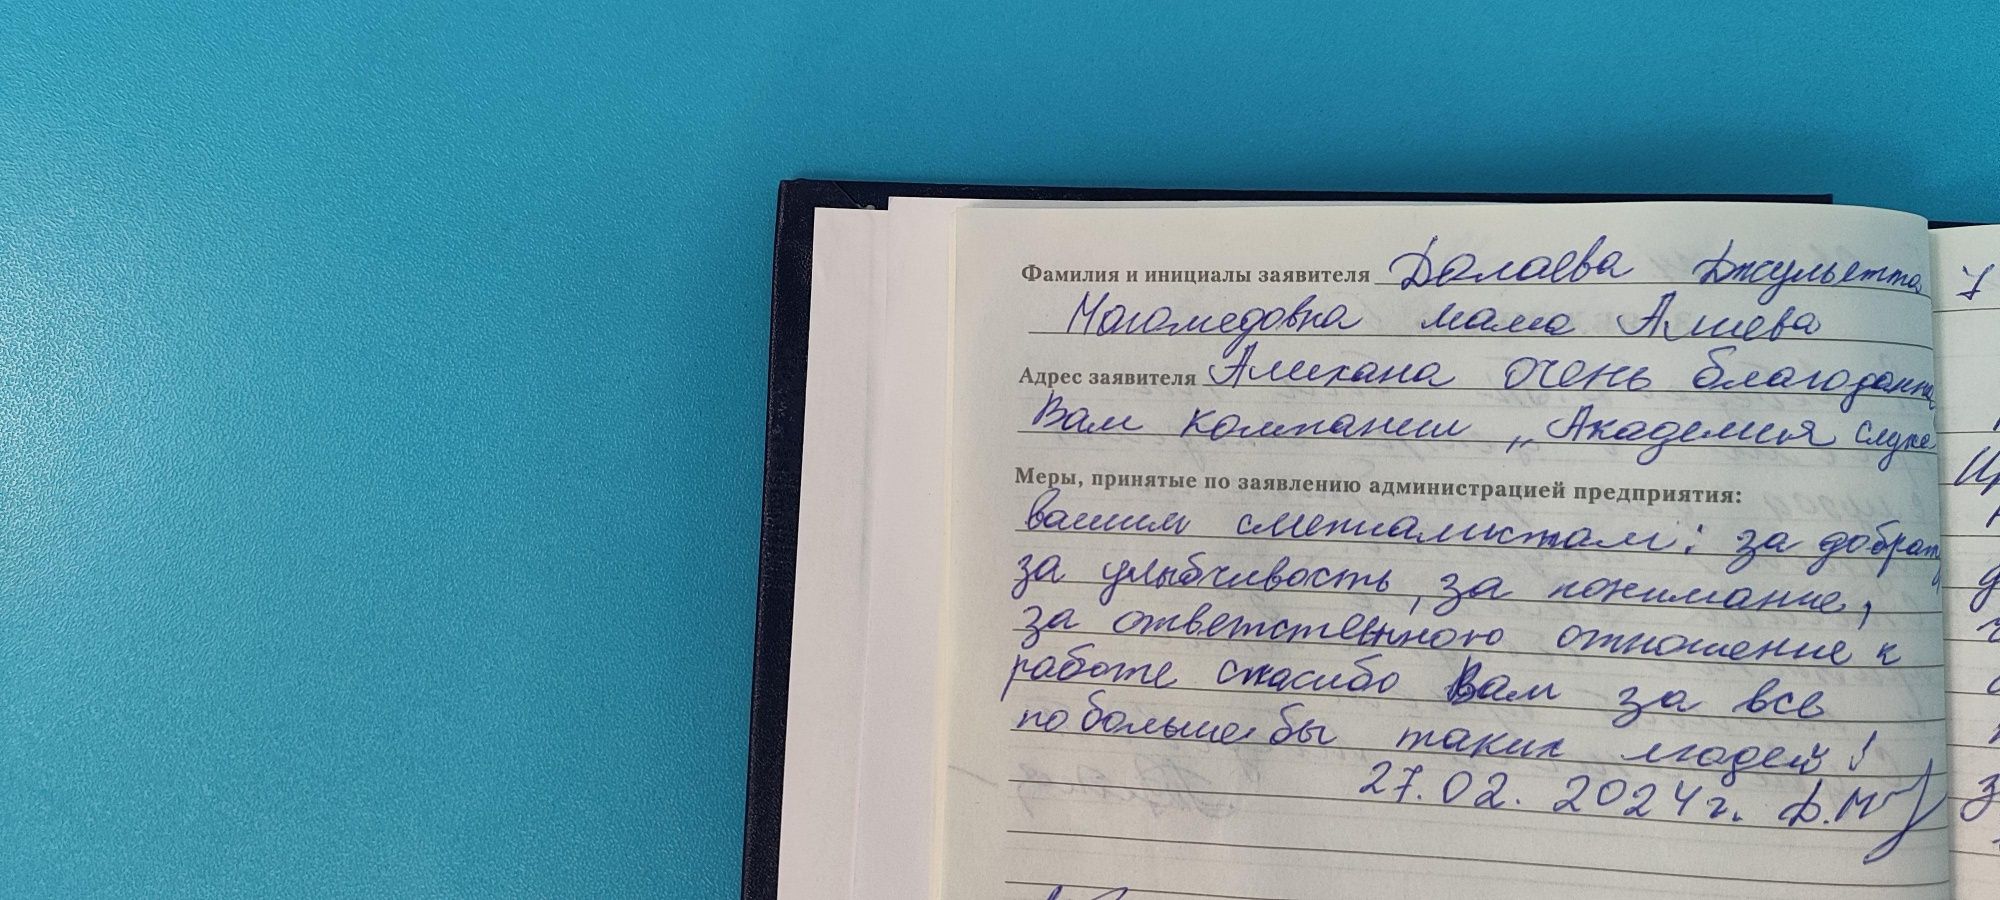 Фамилия и инициалы заявителя Далаева Джульетта
Магомедовна мама Алиева
Адрес заявителя Алихана очень благодарна
Вам компании „Академия слуха
Меры, принятые по заявлению администрацией предприятия:
вашим специалистам: за доброту
за улыбчивость, за понимание,
за ответственного отношение к
работе спасибо Вам за все
побольше бы таких людей!
27.02.2024г. Д.М